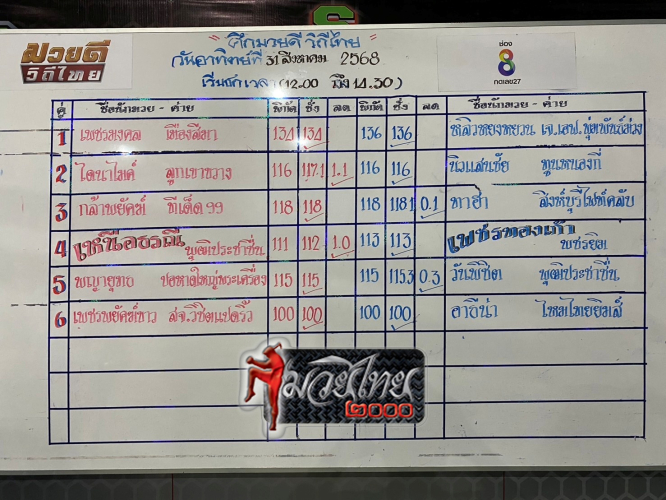 มวยดี
วิถีไทย
ศึกมวยดีวิถีไทย
วันอาทิตย์ที่ 31 สิงหาคม 2568
เริ่มชกเวลา (12.00 ถึง 14.30)
ช่อง
8
กดเลข27
คู่ ชื่อนักมวย - ค่าย พิกัด ชั่ง ลด พิกัด ชั่ง ลด ชื่อนักมวย - ค่าย
1 เพชรมงคล 134 134 136 136 หลิวหยงหยวน
2 ไดนาไมค์ ลูกเขาขวาง 116 117.1 1.1 116 116 นิวแสนชัย ทูนหนองกี่
3 กล้าพยัคฆ์ ทีเด็ด99 118 118 118 118.1 0.1 ทาฮ่า สิงห์บุรีไฟท์คลับ
4 เหนือธรณี พุฒิประชาชื่น 111 112 1.0 113 113 เพชรทองเก้า พชรยิม
5 พญายุทธ ช่อหาดใหญ่พระเครื่อง 115 115 115 115.3 0.3 วันพิชิต พุฒิประชาชื่น
6 เพชรพยัคฆ์ขาว ส.จ.วิชิตแปดริ้ว 100 100 100 100 อาธีน่า ไหมไทยยิมส์
มวยไทย
๒๐๐๐